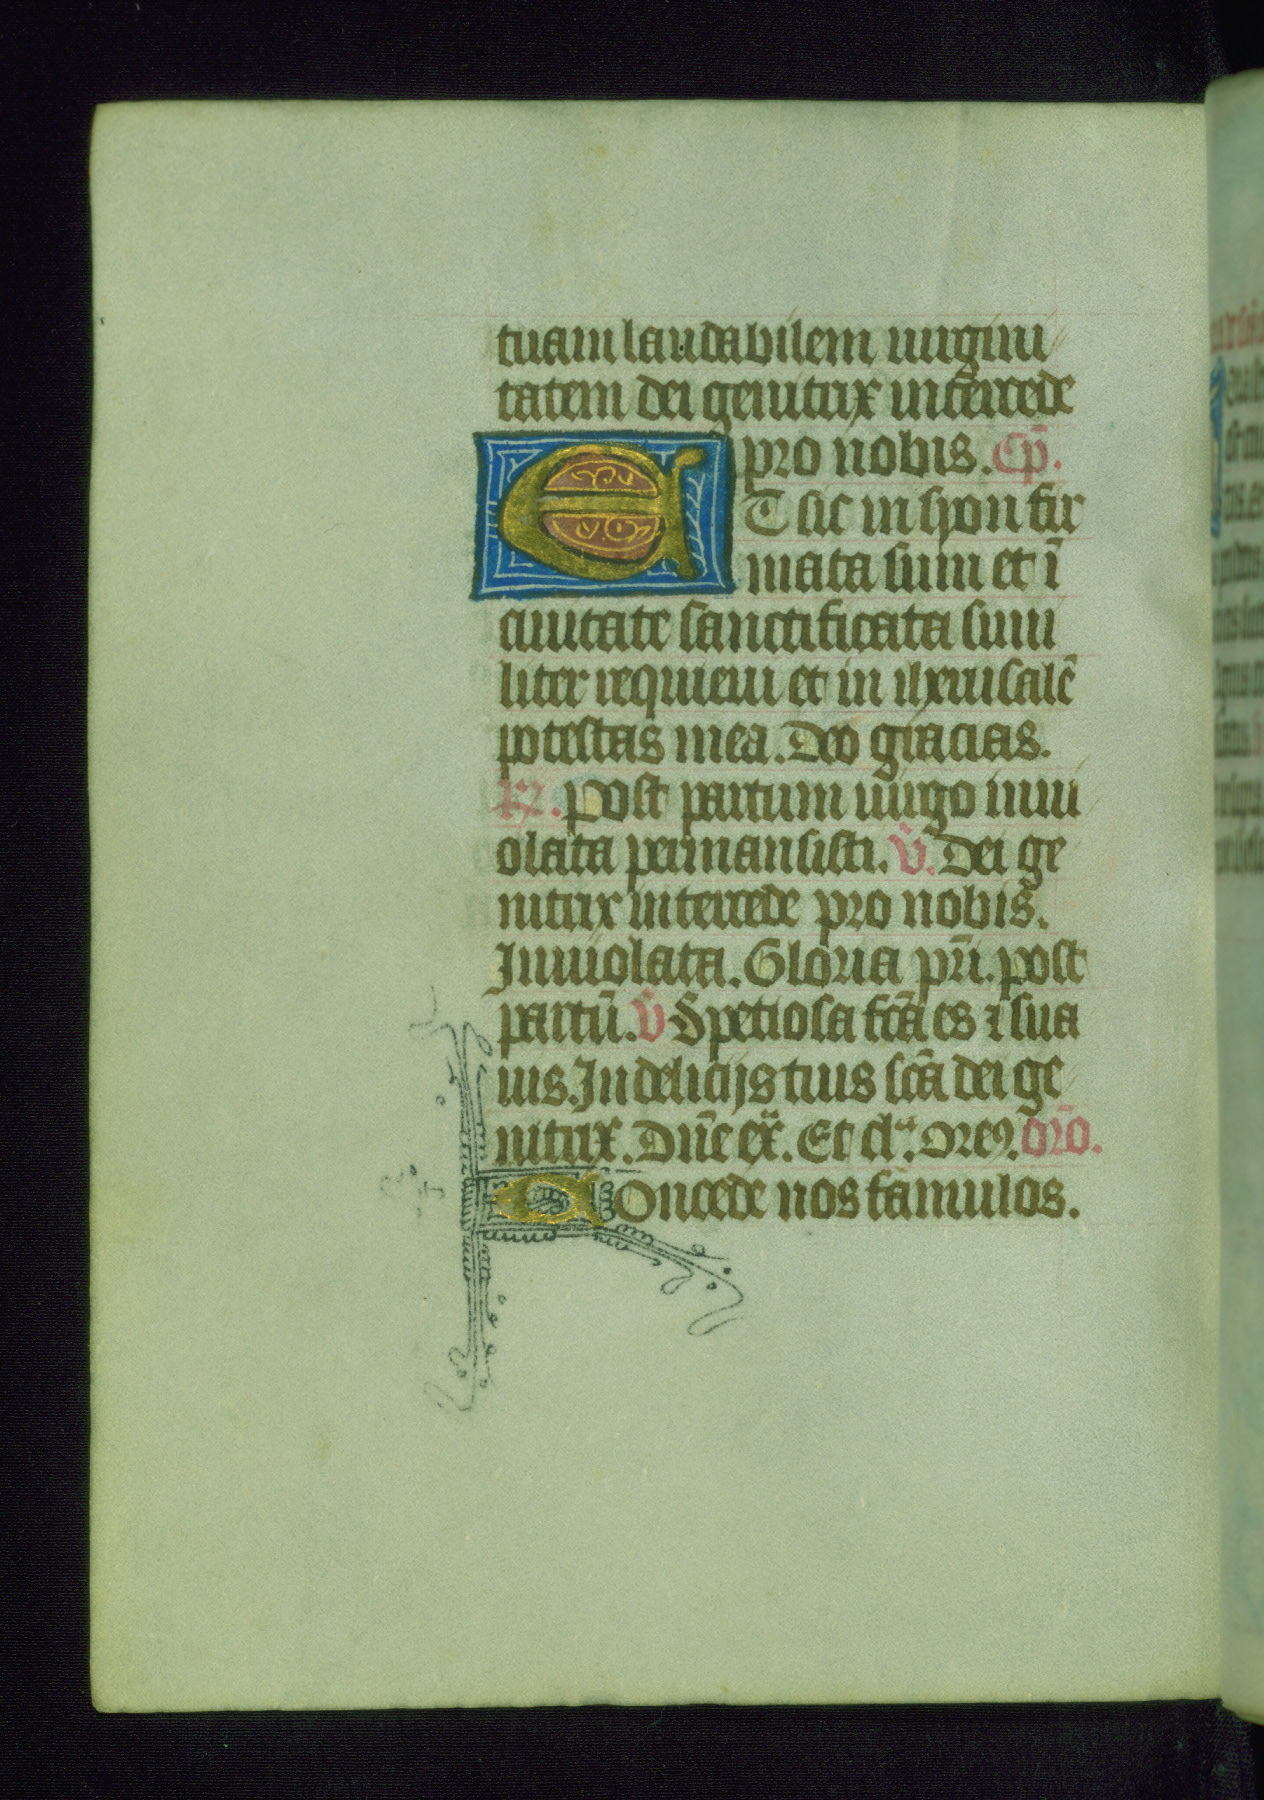 tuam laudabilem uirgini
tatem dei genitrix intercede
pro nobis. Cp̄.
ET sic in syon fir
mata sum et ī
ciuitate sanctificata simi
liter requieui et in iherusalē
potestas mea. Deo gracias.
R. Post partum uirgo inui
olata permansisti. v̄. Dei ge
nitrix intercede pro nobis.
Inuiolata. Gloria pr̄i. post
partū. v̄ Spetiosa fc̄a es ⁊ sua
uis. In delicijs tuis sc̄a dei ge
nitrix. Dn̄e ex̄. Et cl. orem. or̄o.
Concede nos famulos.